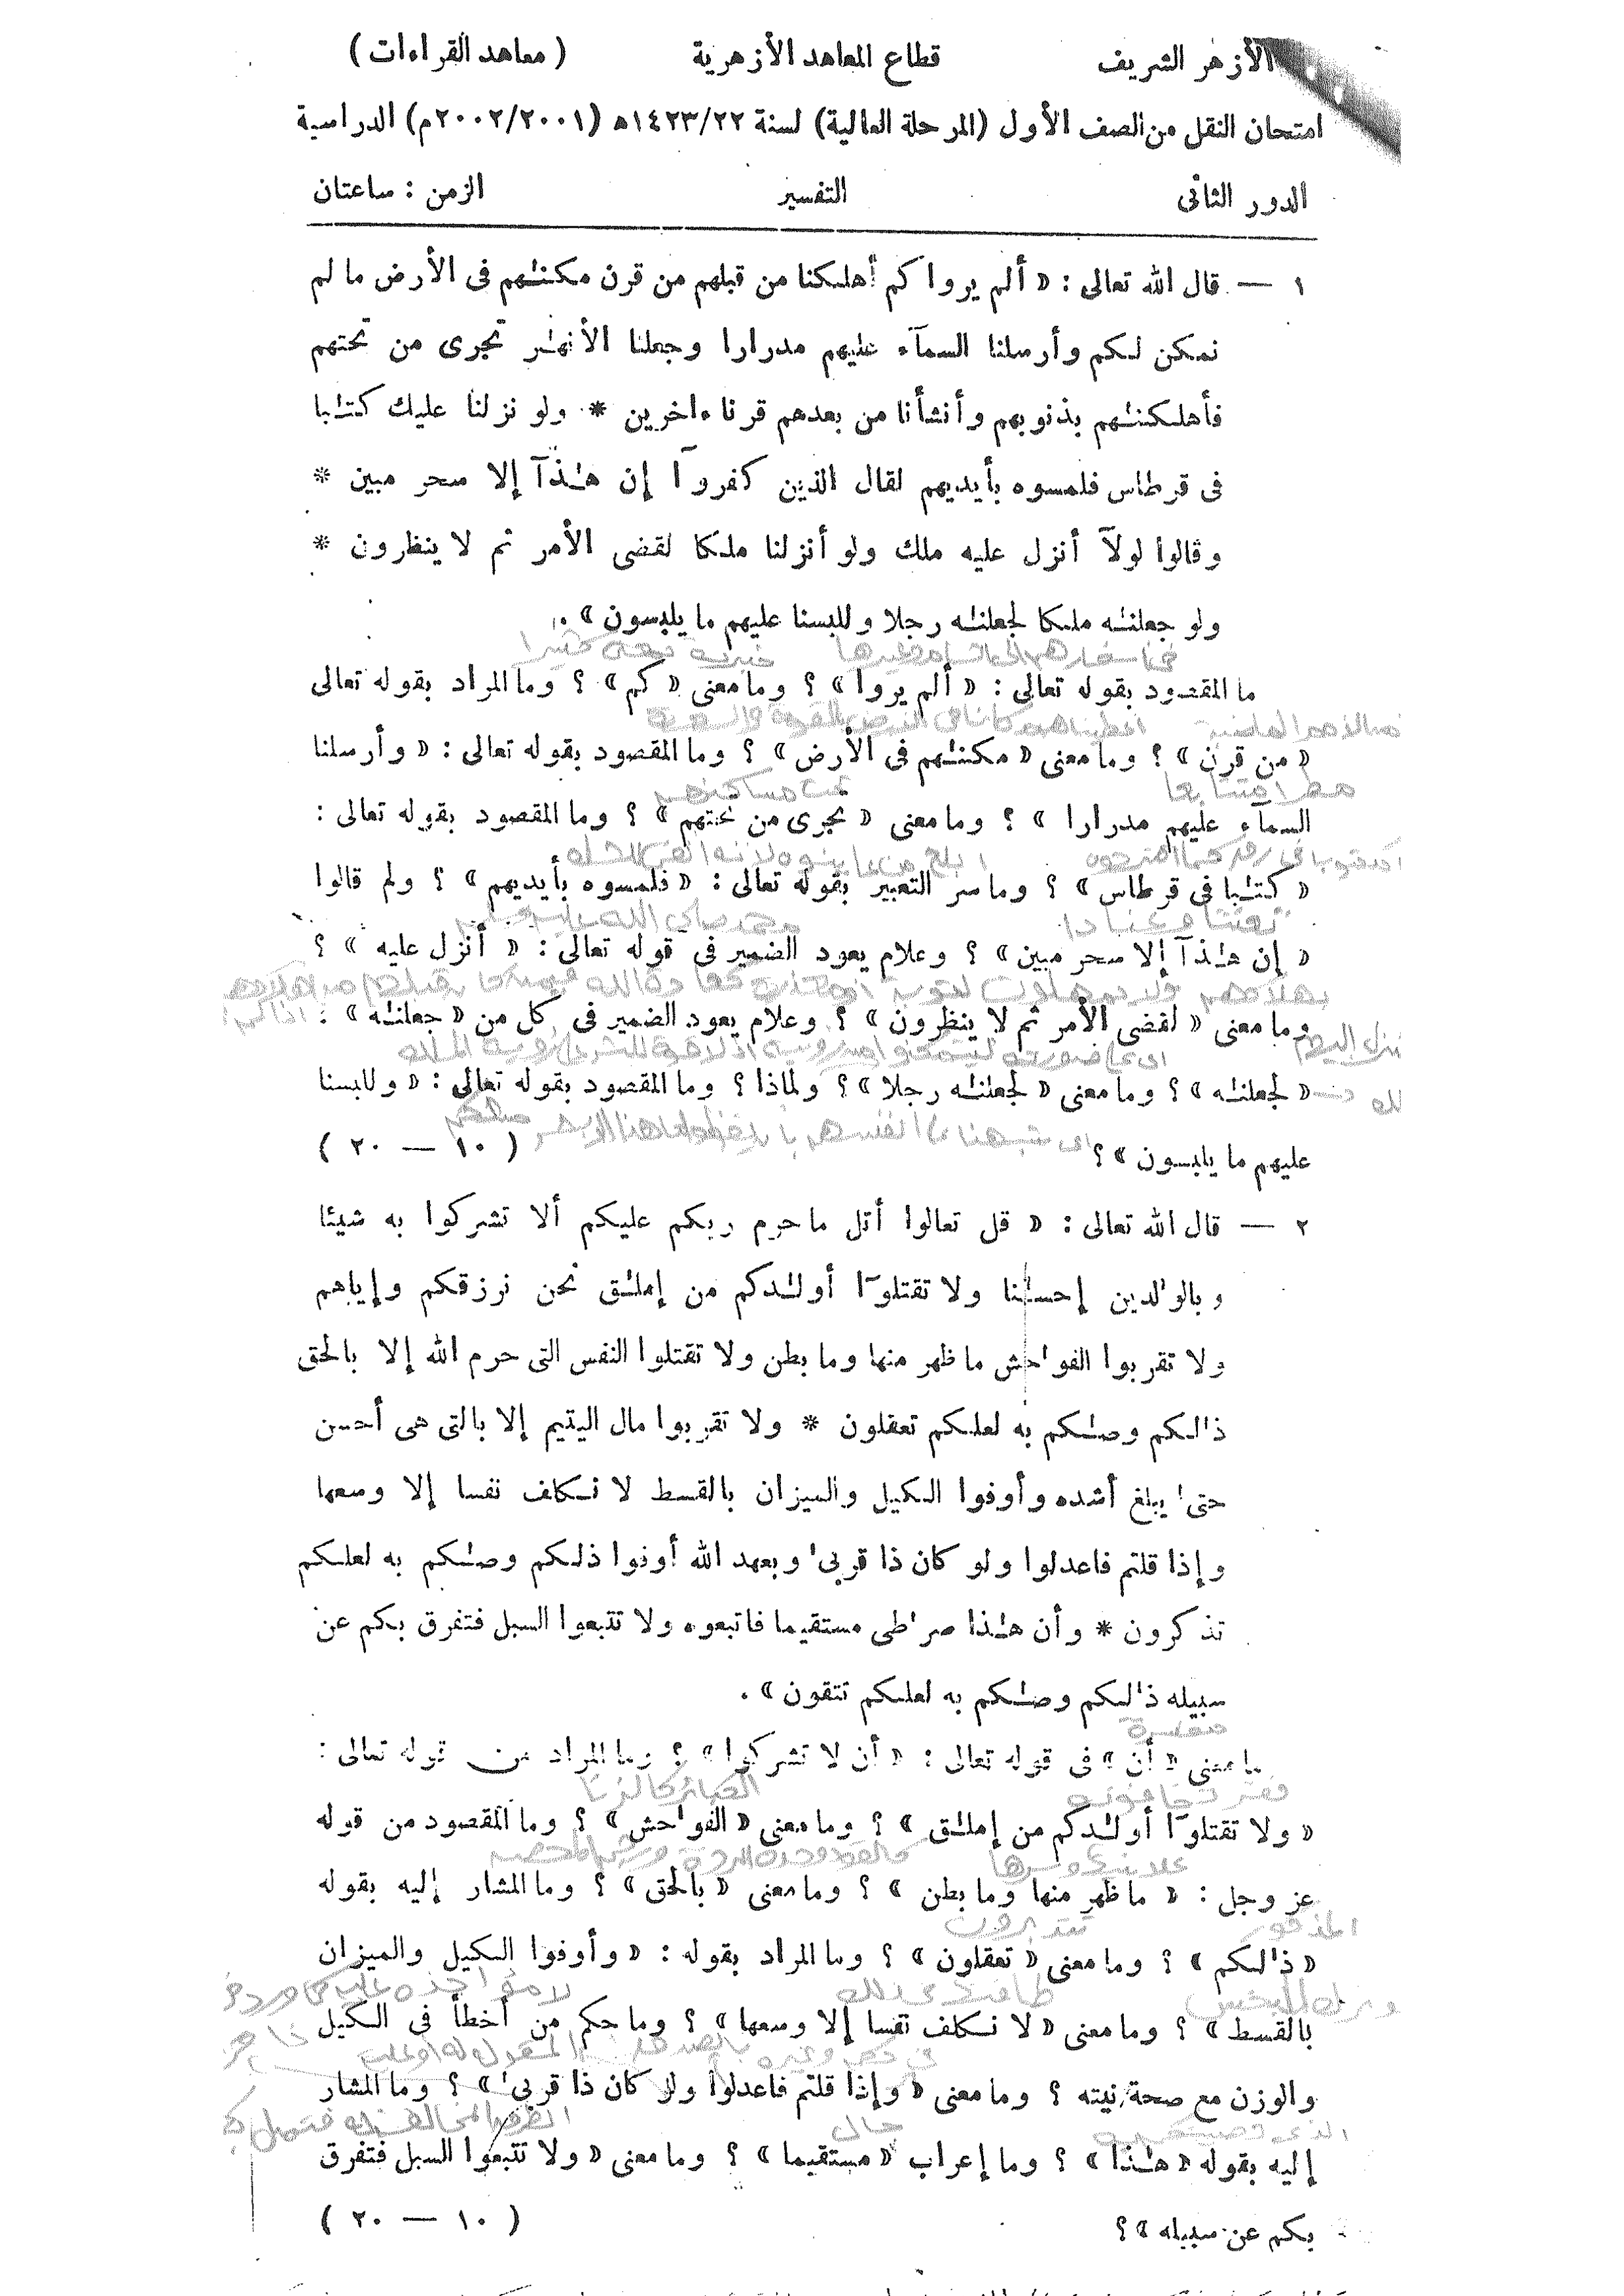 الأزهر الشريف قطاع المعاهد الأزهرية ( معاهد القراءات )
امتحان النقل من الصف الأول (المرحلة العالية) لسنة ١٤٢٣/٢٢ھ (٢٠٠٢/٢٠٠١م) الدراسية
الدور الثانى التفسير الزمن : ساعتان
١ — قال الله تعالى : « ألم يروا كم أهلكنا من قبلهم من قرن مكنـٰهم فى الأرض ما لم
نمكن لكم وأرسلنا السمآء عليهم مدرارا وجعلنا الأنهـٰر تجرى من تحتهم
فأهلكنـٰهم بذنوبهم وأنشأنا من بعدهم قرنا ءاخرين * ولو نزلنا عليك كتـٰبا
فى قرطاس فلمسوه بأيديهم لقال الذين كفروآ إن هـٰذآ إلا سحر مبين *
وقالوا لولآ أنزل عليه ملك ولو أنزلنا ملكا لقضى الأمر ثم لا ينظرون *
ولو جعلنـٰه ملكا لجعلنـٰه رجلا وللبسنا عليهم ما يلبسون » .
خبرية بمعنى كثيرا
ما المقصود بقوله تعالى : « ألم يروا » ؟ وما معنى « كم » ؟ وما المراد بقوله تعالى
الأمم الماضية
« من قرن » ؟ وما معنى « مكنـٰهم فى الأرض » ؟ وما المقصود بقوله تعالى : « وأرسلنا
مطرا متتابعا تحت مساكنهم
السماء عليهم مدرارا » ؟ وما معنى « تجرى من تحتهم » ؟ وما المقصود بقوله تعالى :
« كتـٰبا فى قرطاس » ؟ وما سر التعبير بقوله تعالى : « فلمسوه بأيديهم » ؟ ولم قالوا
تعنتا وعنادا محمد صلى الله عليه وسلم
« إن هـٰذآ إلا سحر مبين » ؟ وعلام يعود الضمير فى قوله تعالى : « أنزل عليه » ؟
وما معنى « لقضى الأمر ثم لا ينظرون » ؟ وعلام يعود الضمير فى كل من « جعلنـٰه » :
« لجعلنـٰه » ؟ وما معنى « لجعلنـٰه رجلا » ؟ ولماذا ؟ وما المقصود بقوله تعالى : « وللبسنا
عليهم ما يلبسون » ؟ ( ١٠ — ٢٠ )
٢ — قال الله تعالى : « قل تعالوا أتل ما حرم ربكم عليكم ألا تشركوا به شيئا
وبالوٰلدين إحسـٰنا ولا تقتلوآ أولـٰدكم من إملـٰق نحن نرزقكم وإياهم
ولا تقربوا الفوٰحش ما ظهر منها وما بطن ولا تقتلوا النفس التى حرم الله إلا بالحق
ذٰلكم وصـٰكم به لعلكم تعقلون * ولا تقربوا مال اليتيم إلا بالتى هى أحسن
حتىٰ يبلغ أشده وأوفوا الكيل والميزان بالقسط لا نكلف نفسا إلا وسعها
وإذا قلتم فاعدلوا ولو كان ذا قربىٰ وبعهد الله أوفوا ذلكم وصـٰكم به لعلكم
تذكرون * وأن هـٰذا صرٰطى مستقيما فاتبعوه ولا تتبعوا السبل فتفرق بكم عن
سبيله ذٰلكم وصـٰكم به لعلكم تتقون » .
مفسرة
ما معنى « أن » فى قوله تعالى : « أن لا تشركوا » ؟ وما المراد من قوله تعالى :
فقر تخافونه الكبائر كالزنا
« ولا تقتلوآ أولـٰدكم من إملـٰق » ؟ وما معنى « الفوٰحش » ؟ وما المقصود من قوله
علانيتها وسرها كالقود وحد الردة ورجم المحصن
عز وجل : « ما ظهر منها وما بطن » ؟ وما معنى « بالحق » ؟ وما المشار إليه بقوله
المذكور تتدبرون
« ذٰلكم » ؟ وما معنى « تعقلون » ؟ وما المراد بقوله : « وأوفوا الكيل والميزان
وترك البخس طاقتها فى ذلك
بالقسط » ؟ وما معنى « لا نكلف نفسا إلا وسعها » ؟ وما حكم من أخطأ فى الكيل
والوزن مع صحة نيته ؟ وما معنى « وإذا قلتم فاعدلوا ولو كان ذا قربىٰ » ؟ وما المشار
حال
إليه بقوله « هـٰذا » ؟ وما إعراب « مستقيما » ؟ وما معنى « ولا تتبعوا السبل فتفرق
بكم عن سبيله » ؟ ( ١٠ — ٢٠ )